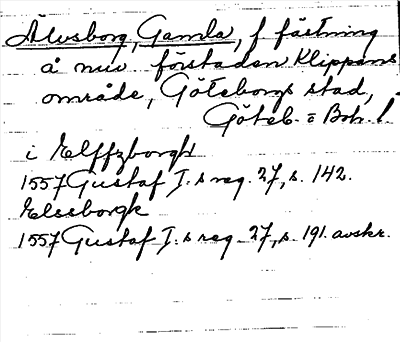 Älvsborg, Gamla, f fästning
å nuv förstaden Klippans
område, Göteborgs stad,
Göteb. o Boh. l
i Elffzborgh
1557 Gustaf I.s reg. 27, s. 142.
Elssborgk
1557 Gustaf I.s reg. 27, s. 191. avskr.